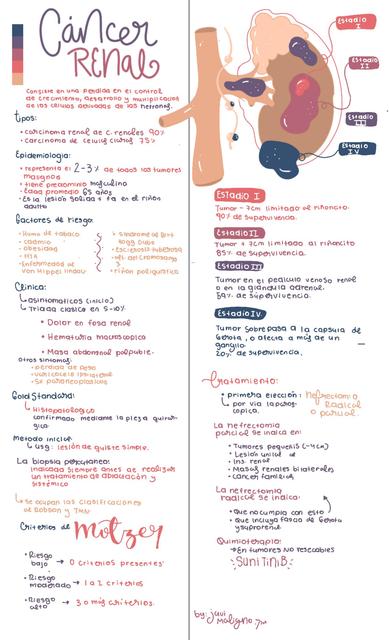 Cáncer
RENAL
Consiste en una pérdida en el control
de crecimiento, desarrollo y multiplicación
de las células derivadas de las nefronas.
Tipos:
• carcinoma renal de c. renales 90%
• Carcinoma de células claras 75%
Epidemiología:
• representa el 2-3% de todos los tumores
malignos
• tiene predominio masculino
• Edad promedio 65 años
• Es la lesión sólida + fx en el riñón
adulto
Factores de riesgo:
• Humo de tabaco
• cadmio
• obesidad
• HTA
• Enfermedad de
Von Hippel Lindau
• síndrome de Birt
Hogg Dube
• Esclerosis tuberosa
• Riñón poliquístico
Clínica:
↳ asintomáticos (inicio)
↳ Triada clásica en 5-10%
• Dolor en fosa renal
• Hematuria macroscópica
• Masa abdominal palpable.
otros síntomas:
• pérdida de peso
• varicocele ipsilateral
• Sx paraneoplásicos
Gold Standard:
↳ Histopatológico
confirmado mediante la pieza quirúr-
gica.
Método inicial
↳ USG: lesión de quiste simple.
La biopsia percutánea:
indicada siempre antes de realizar
un tratamiento de ablación y
sistémico
↳ Se ocupan las clasificaciones
de Robson y TNM
Criterios de Motzer
• Riesgo
bajo → 0 criterios presentes
• Riesgo
moderado → 1 a 2 criterios
• Riesgo
alto → 3 o más criterios.
Estadio
I
Estadio
II
Estadio
III
Estadio
IV
Estadio I
Tumor - 7cm limitado al riñoncito.
90% de supervivencia.
Estadio II
Tumor + 7cm limitado al riñoncito
85% de supervivencia.
Estadio III
Tumor en el pedículo venoso renal
o en la glándula adrenal.
59% de supervivencia.
Estadio IV
Tumor sobrepasa la cápsula de
Gerota, o afecta a más de un
ganglio.
20% de supervivencia.
Tratamiento:
• primera elección: Nefrectomía
Radical
o parcial.
↳ por vía laparos-
cópica.
La nefrectomía
parcial se indica en:
• Tumores pequeños (-4cm)
• Lesión única
• Ins. renal
• Masas renales bilaterales
• Cáncer familiar
La nefrectomía
radical se indica:
• Que no cumpla con esto
• Que incluya fascia de Gerota
y suprarrenal
Quimioterapia:
→ En tumores no resecables
SUNITINIB
by: javi